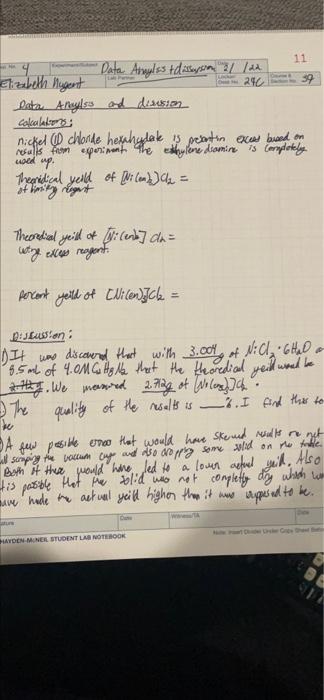 11
4
Data Anaylss + disscussion
2/ /22
Elizabeth Nugent
Lab Partner
24C
39
Data Anaylsis and disission
calculations:
nickel (II) chloride hexahydate is present in excess based on
results from experiment. The ethylene diamine is completely
used up.
Theoridical yeild of [Ni(en)3]Cl2 =
of limiting reagent
Theoredial yeild of [Ni(en)3]Cl2 =
using excess reagent
percent yeild of [Ni(en)3]Cl2 =
Discussion:
1) It was discovered that with 3.004g of NiCl2 · 6H2O
5.5 mL of 4.0M C2H8N2 that the theoredical yeild would be
g. We measured 2.712g of [Ni(en)3]Cl2.
The quality of the results is ___%. I find this to
be
A few possible errors that would have skewed results are not
scraping the vaccum cup and also dropping some solid on the table.
Both of these would have led to a lower actual yeild. Also
its possible that the solid was not completley dry which
have made the actual yeild higher than it was supposed to be.
Date
Witness/TA
Date
HAYDEN-McNEIL STUDENT LAB NOTEBOOK
Note: Insert Divider Under Copy Sheet